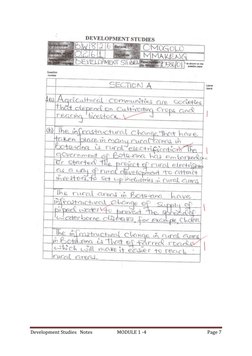 DEVELOPMENT STUDIES
DEVELOPMENT STUDIES
SECTION A
Agricultural communities are societies
that depend on cultivating crops and
rearing livestock.
The infrastructural change that have
taken place in many rural areas in
Botswana is rural electrification. The
government of Botswana has embarked
or started the project of rural electrification
as a way of rural development to attract
investors to set up industries in rural areas
The rural areas in Botswana have
infrastructural change of supply of
piped water to prevent the spread of
waterborne diseases, for example, cholera
The infrastructural change in rural areas
in Botswana is that of tarred roads
which will make it easier to reach
rural areas.
Development Studies Notes MODULE 1 -4 Page 7